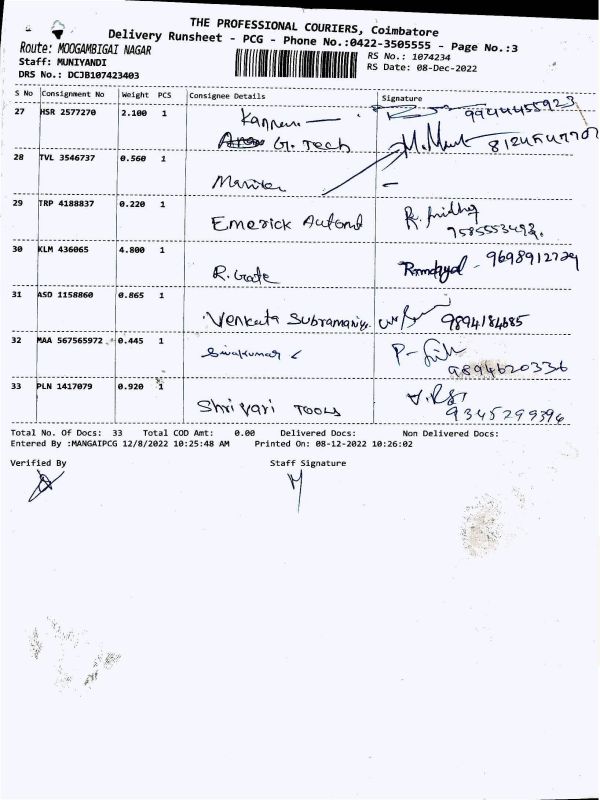 THE PROFESSIONAL COURIERS, Coimbatore
Delivery Runsheet - PCG - Phone No.:0422-3505555 - Page No.:3
Route: MOOGAMBIGAI NAGAR
RS No.: 1074234
Staff: MUNIYANDI
RS Date: 08-Dec-2022
DRS No.: DCJB107423403
S No Consignment No Weight PCS Consignee Details Signature
27 HSR 2577270 2.100 1 Kannan
G. Tech
28 TVL 3546737 0.560 1
29 TRP 4188837 0.220 1 Emerick
7585553493.
30 KLM 436065 4.800 1 R. Gate 9698912729
31 ASD 1158860 0.865 1 Venkata Subramaniya 9894184685
32 MAA 567565972 0.445 1 Sivakumar
9894620336
33 PLN 1417079 0.920 1 Shri Vari TOOLS
9345299396
Total No. Of Docs: 33 Total COD Amt: 0.00 Delivered Docs: Non Delivered Docs:
Entered By :MANGAIPCG 12/8/2022 10:25:48 AM Printed On: 08-12-2022 10:26:02
Verified By Staff Signature